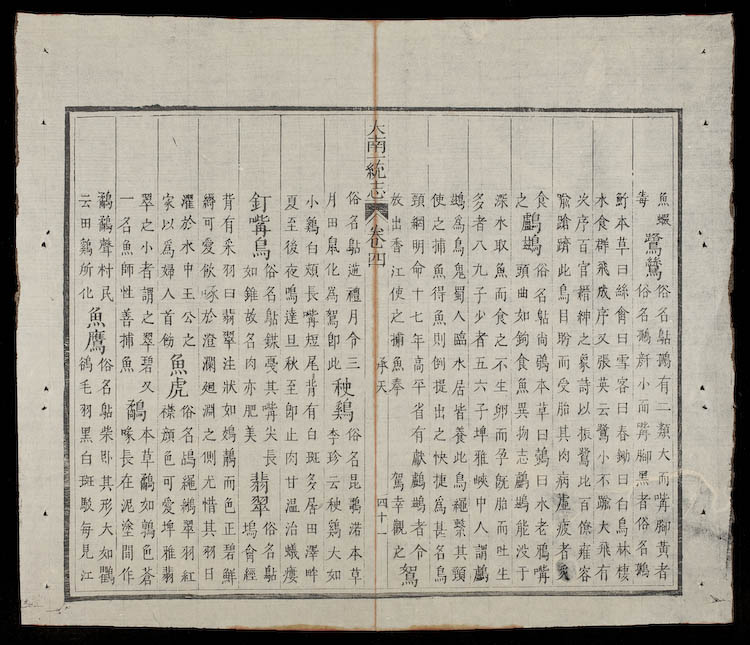 魚蝦
毒
鷺鷥
俗名鴕鵝有二類大而嘴脚黃者
小而嘴脚黑者俗名鵝
本草曰絲禽曰雪客曰舂鋤曰白鳥林棲
水食群飛成序又張英云鷺小不踰大飛有
次序百官縉紳之象詩以振鷺比百僚雍容
蹌躋此鳥目盼而受胎其肉病虛疲者炙
食
之
鸕鷀
俗名鴕尚本草曰鷧曰水老鴉嘴
頭曲如鉤食魚異物志鸕鷀能没于
深水取魚而食之不生卵而孕胎而吐生
多者八九子少者五六子埤雅峽中人謂鸕
鷀爲烏鬼蜀人臨水居皆養此鳥繩繫其頸
使之捕魚得魚則倒提出之快捷爲甚名烏
頭網明命十七年高平省有獻鸕鷀者令
放出香江使之捕魚奉 駕幸觀之
鴽
大南一統志 卷四 承天 四十一
俗名鴕迦禮月令三
月田鼠化爲鴽即此
秧鷄
俗名昆渃本草
李珍云秧鷄大如
小鷄白頰長嘴短尾背有白斑多居田澤畔
夏至後夜鳴達旦秋至即止肉甘溫治蟻瘻
釘嘴鳥
俗名鴕其嘴尖長
如錐故名肉亦肥美
翡翠
俗名鴕
禽經
背有采羽曰翡翠注狀如鵁鶄而色正碧鮮
縟可愛飲啄於澄瀾廻淵之側尤惜其羽日
濯於水中王公之
家以爲婦人首飾
魚虎
俗名繩翠羽紅
襟顏色可愛埤雅翡
翠之小者謂之翠碧又
一名魚師性善捕魚
鷸
本草鷸如鶉色蒼
喙長在泥塗間作
鷸鷸聲村民
云田鷄所化
魚鷹
俗名鴕柴卧其形大如鸛
鵒毛羽黑白斑駁每見江